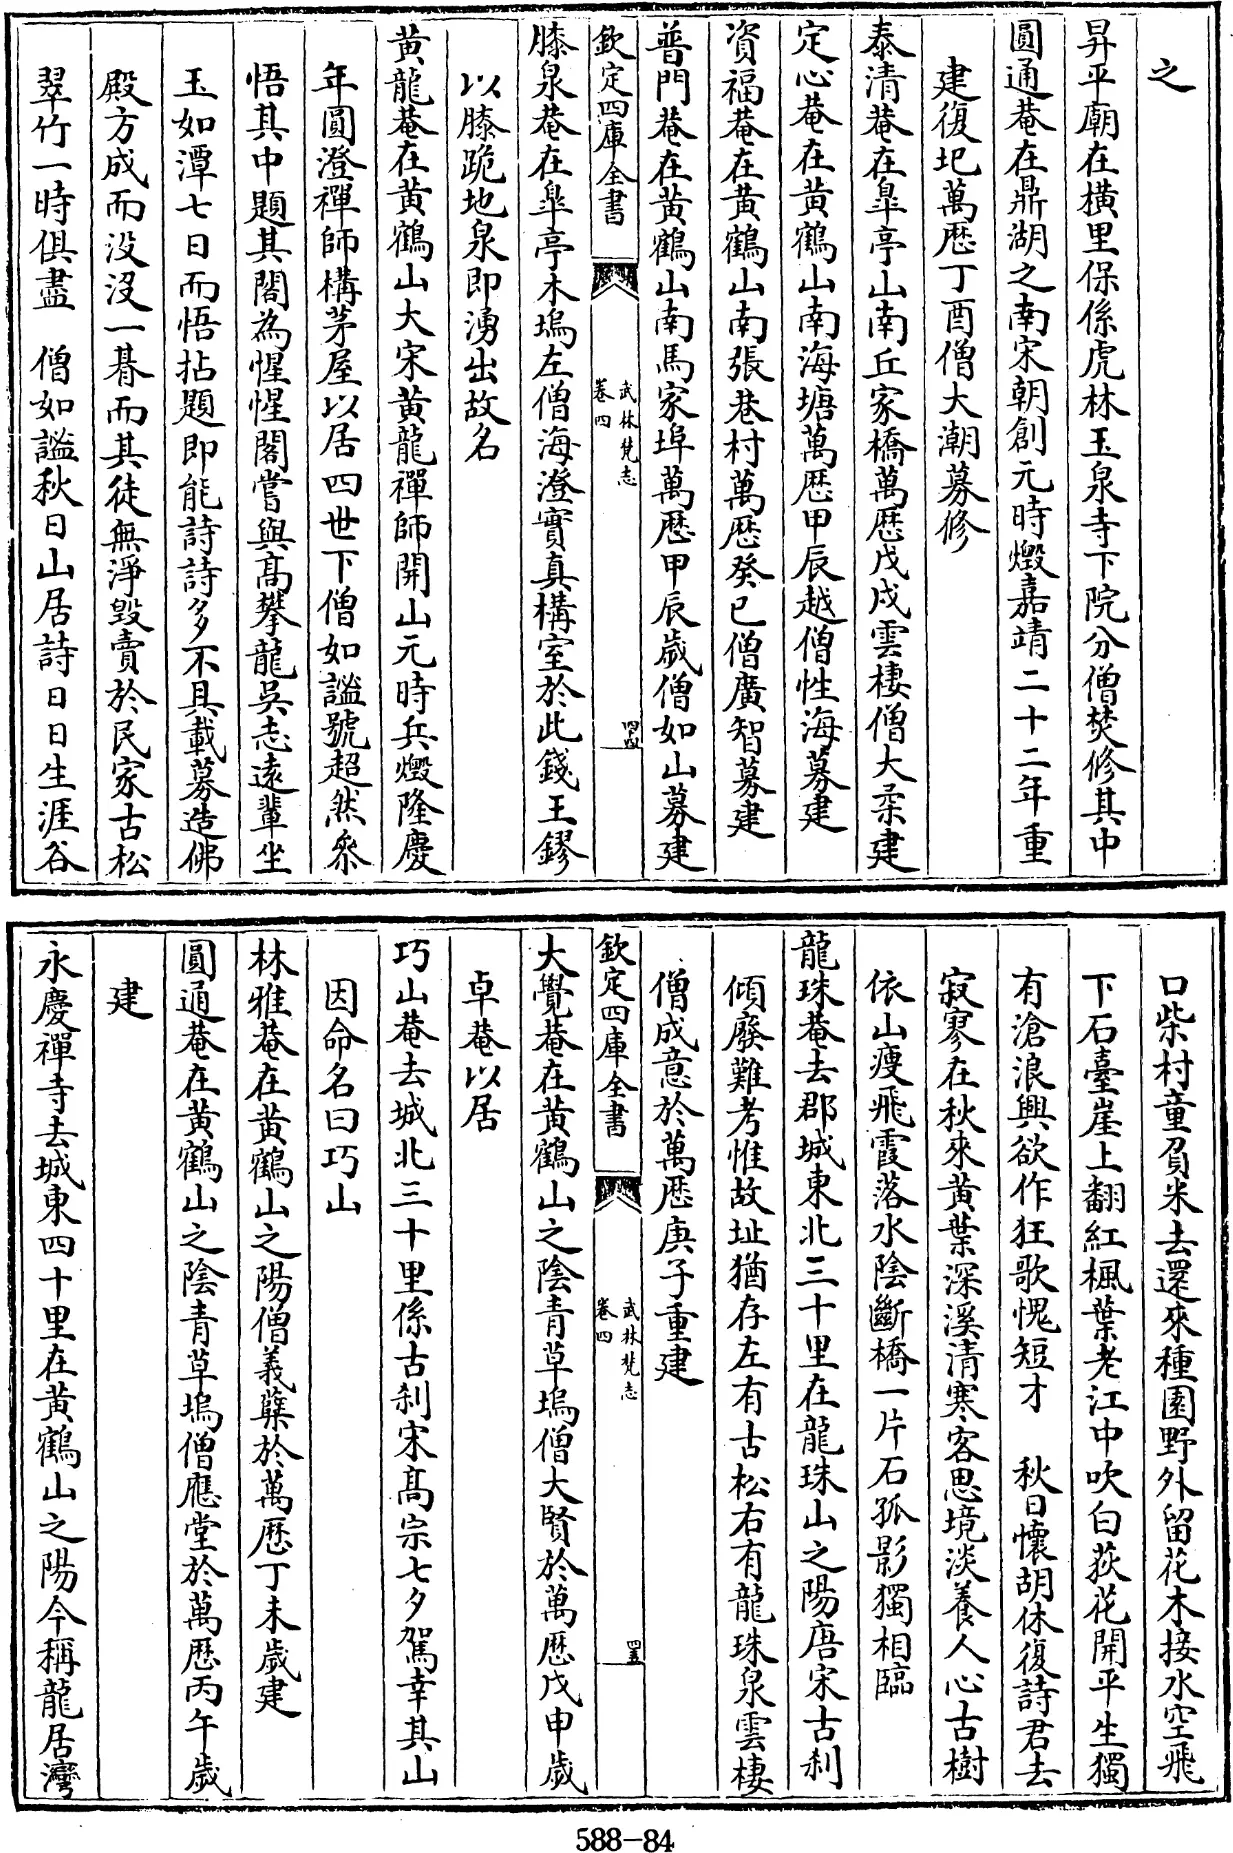 之
昇平廟在横里保係虎林玉泉寺下院分僧焚修其中
圓通菴在鼎湖之南宋朝創元時燬嘉靖二十二年重
建復圯萬厯丁酉僧大潮募修
泰清菴在臯亭山南丘家橋萬厯戊戌雲棲僧大柔建
定心菴在黄鶴山南海塘萬厯甲辰越僧性海募建
資福菴在黄鶴山南張巷村萬厯癸巳僧廣智募建
普門菴在黄鶴山南馬家埠萬厯甲辰歲僧如山募建
欽定四庫全書
武林梵志
卷四
四四
膝泉菴在臯亭木塢左僧海澄實真構室於此錢王鏐
以膝跪地泉即湧出故名
黄龍菴在黄鶴山大宋黄龍禪師開山元時兵燬隆慶
年圓澄禪師構茅屋以居四世下僧如謐號超然叅
悟其中題其閣為惺惺閣嘗與髙攀龍吳志遠輩坐
玉如潭七日而悟拈題即能詩詩多不具載募造佛
殿方成而没沒一朞而其徒無淨毀賣於民家古松
翠竹一時俱盡 僧如謐秋日山居詩日日生涯谷
口柴村童負米去還來種園野外留花木接水空飛
下石臺崖上翻紅楓葉老江中吹白荻花開平生獨
有滄浪興欲作狂歌愧短才 秋日懷胡休復詩君去
寂寥在秋來黄葉深溪清寒客思境淡養人心古樹
依山瘦飛霞落水陰斷橋一片石孤影獨相臨
龍珠菴去郡城東北三十里在龍珠山之陽唐宋古刹
傾廢難考惟故址猶存左有古松右有龍珠泉雲棲
僧成意於萬厯庚子重建
欽定四庫全書
武林梵志
卷四
四五
大覺菴在黄鶴山之陰青草塢僧大賢於萬厯戊申歲
卓菴以居
巧山菴去城北三十里係古刹宋髙宗七夕駕幸其山
因命名曰巧山
林雅菴在黄鶴山之陽僧義蘖於萬厯丁未歲建
圓通菴在黄鶴山之陰青草塢僧應堂於萬厯丙午歲
建
永慶禪寺去城東四十里在黄鶴山之陽今稱龍居灣
588-84